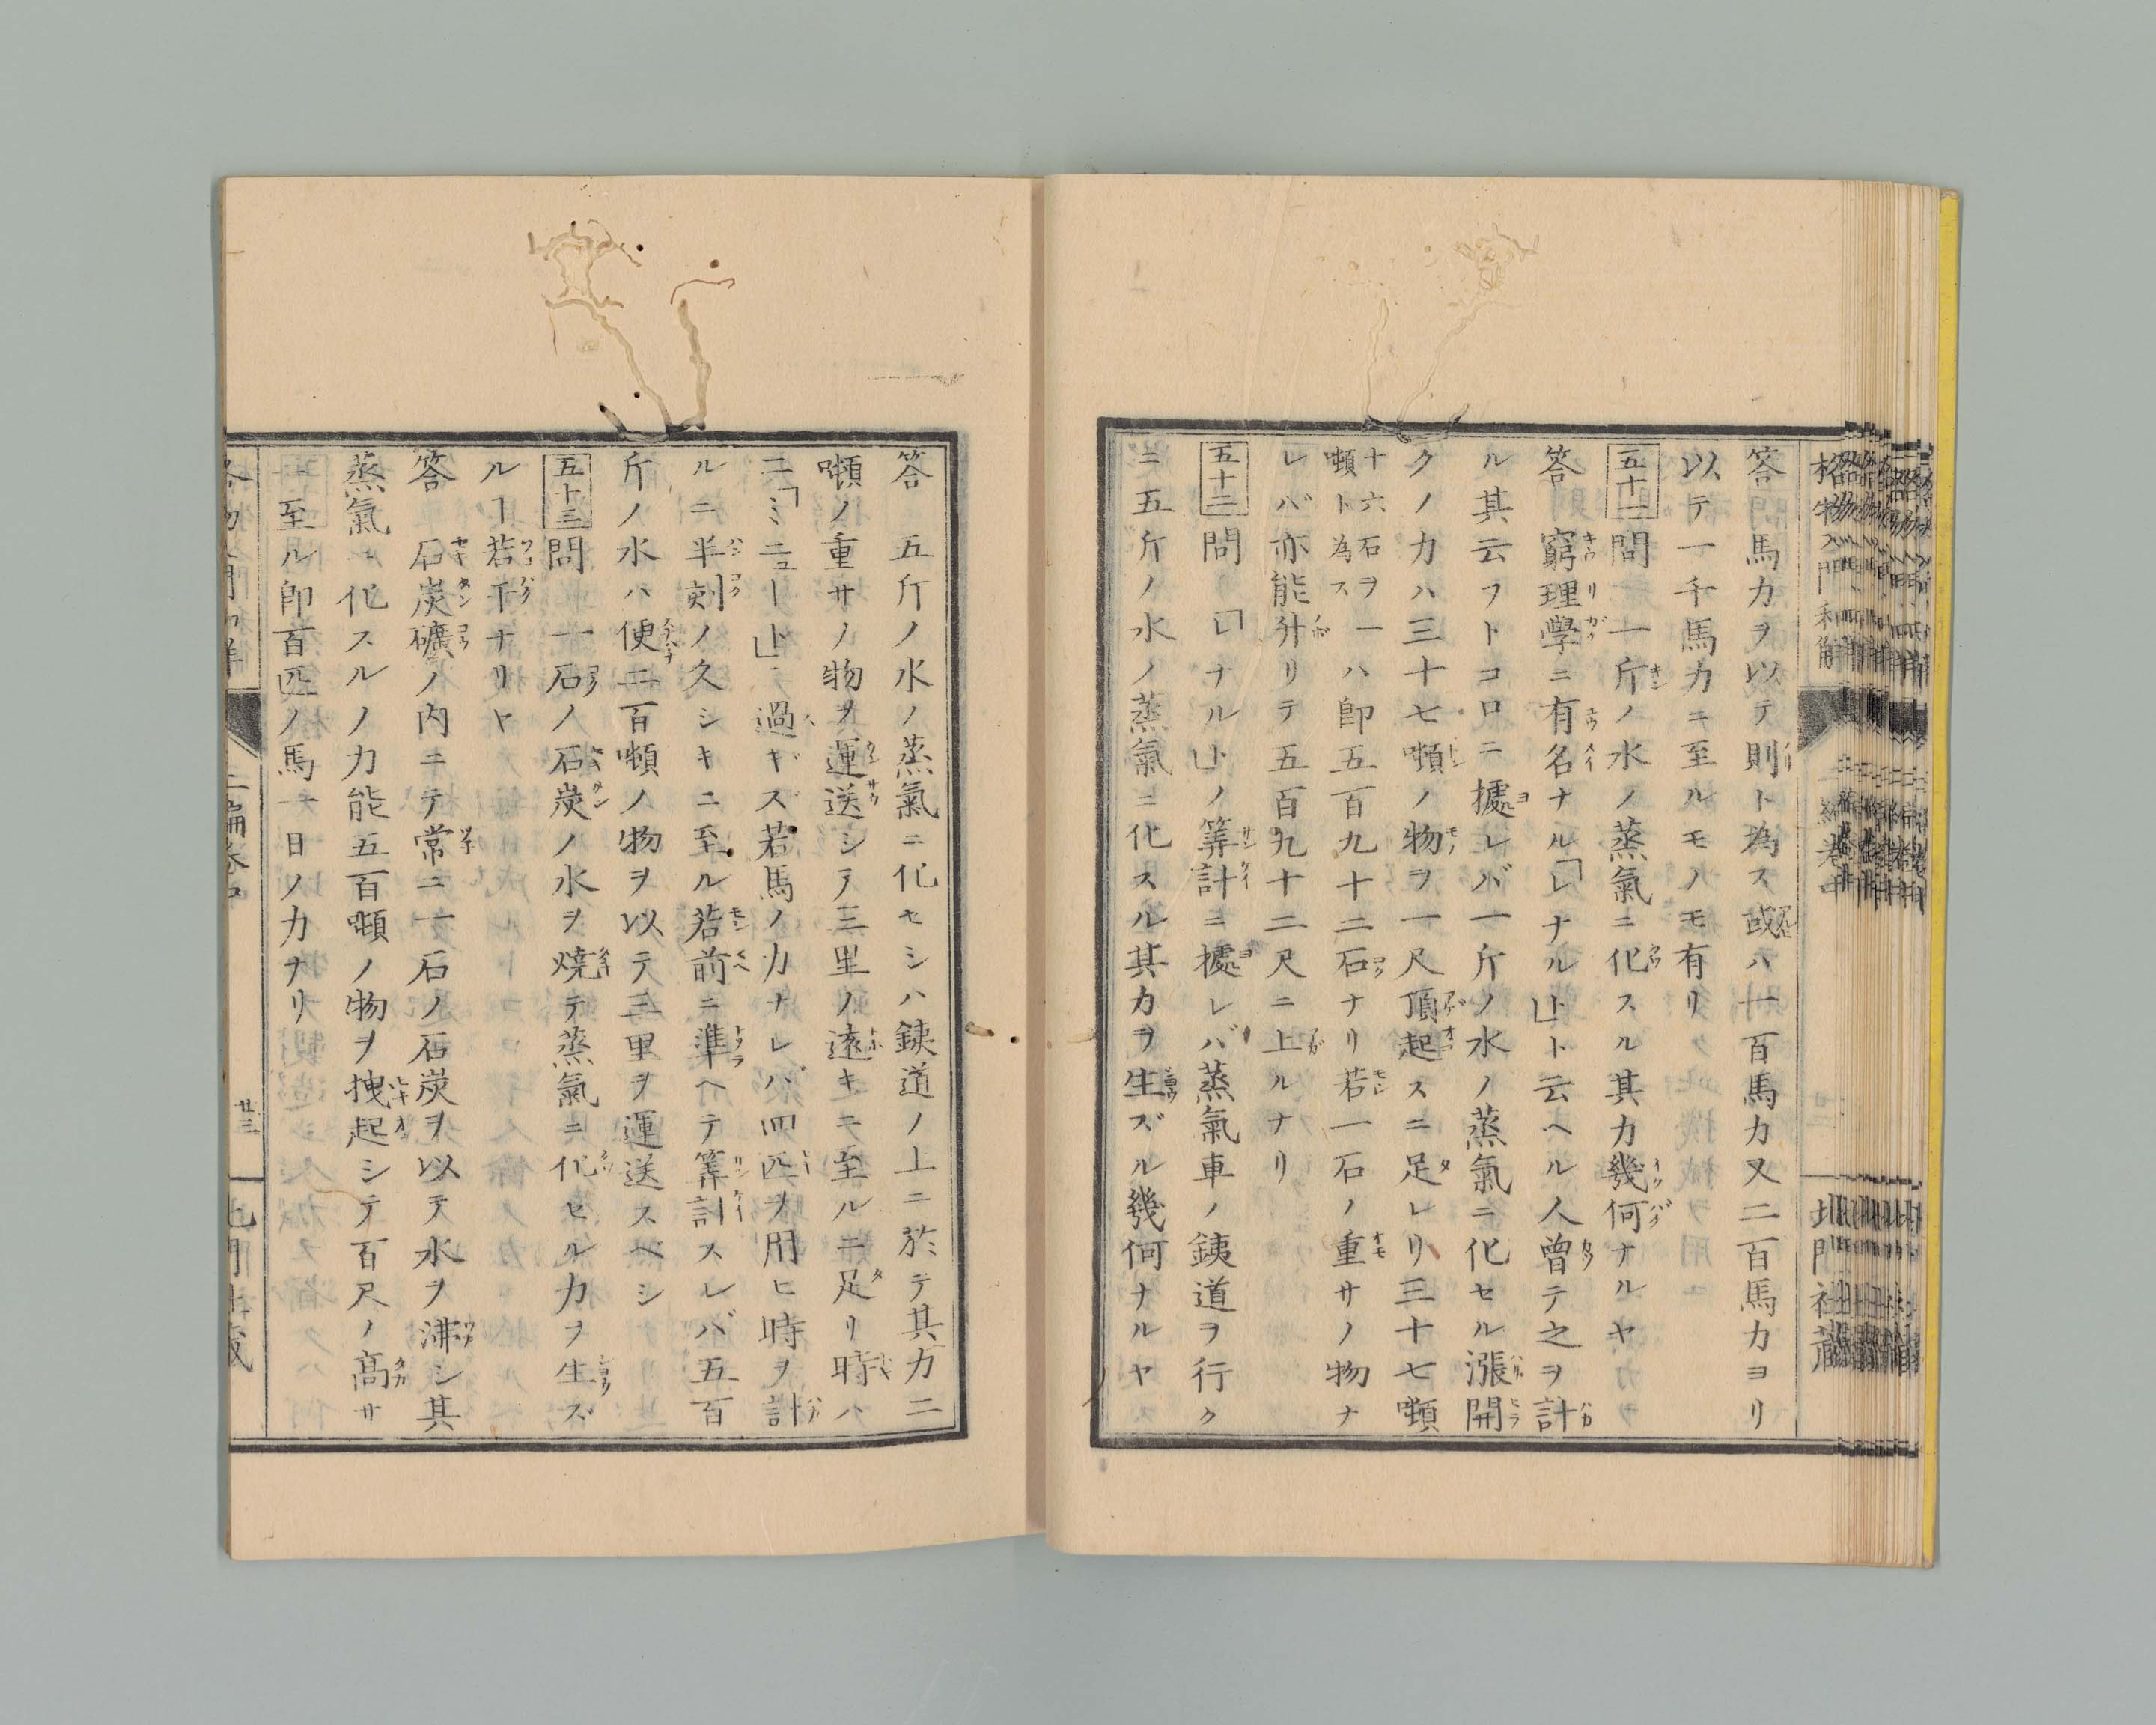 格物入門和解
二編巻中
北門社蔵
答 馬力ヲ以テ則ト為ス或ハ一百馬力又二百馬力ヨリ
以テ一千馬力ニ至ルモノモ有リ
五十一 問 一斤ノ水ノ蒸氣ニ化スル其力幾何ナルヤ
答 窮理學ニ有名ナル「レナルト」ト云ヘル人曽テ之ヲ計
ル其云フトコロニ據レバ一斤ノ水ノ蒸氣ニ化セル漲開
クノ力ハ三十七噸ノ物ヲ一尺頂起スニ足レリ三十七噸
十六石ヲ一噸ト為スハ即五百九十二石ナリ若一石ノ重サノ物ナ
レバ亦能升リテ五百九十二尺ニ上ルナリ
五十二 問 「レナルト」ノ筭計ニ據レバ蒸氣車ノ銕道ヲ行ク
ニ五斤ノ水ノ蒸氣ニ化スル其力ヲ生ズル幾何ナルヤ
答 五斤ノ水ノ蒸氣ニ化セシハ銕道ノ上ニ於テ其力二
噸ノ重サノ物ヲ運送シテ三里ノ遠キニ至ルニ足リ時ハ
二「ミニュート」ニ過ギズ若馬ノ力ナレバ四匹ヲ用ヒ時ヲ計
ルニ半刻ノ久シキニ至ル若前ニ準ヘテ筭計スレバ五百
斤ノ水ハ便二百噸ノ物ヲ以テ三里ヲ運送スベシ
五十三 問 一石ノ石炭ノ水ヲ焼テ蒸氣ニ化セル力ヲ生ズ
ルヿ若干ナリヤ
答 石炭礦ノ内ニテ常ニ一石ノ石炭ヲ以テ水ヲ沸シ其
蒸氣ニ化スルノ力能五百噸ノ物ヲ拽起シテ百尺ノ高サ
ニ至ル即百匹ノ馬一日ノ力ナリ
二編巻中
廿三